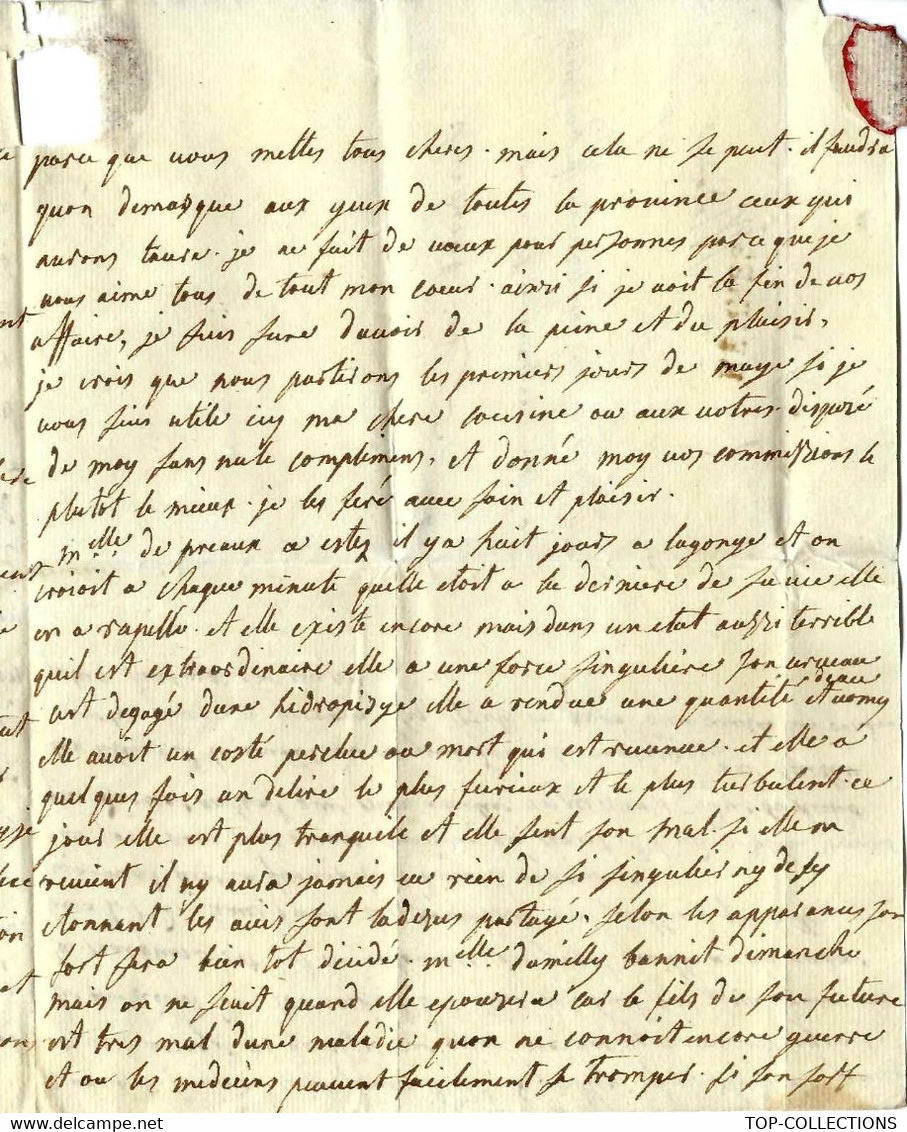 parce que vous mettes tous cheres. mais cela ne se peut. il faudra
quon demasque aux yeux de toutes la province ceux qui
aurons tausre. je ne fait de vœux pour personnes parce que je
vous aime tous de tout mon coeur. ainsi si je voit la fin de vos
affaire, je suis sure davoir de la peine et du plaisir,
je crois que nous partirons les premiers jours de maye si je
vous suis utile icy ma chere cousine ou aux votres. disposé
de moy sans nule complimens, et donné moy vos commissions le
plutôt le mieux. je les feré avec soin et plaisir.
melle de preaux a estes il ya huit jours a lagonye et on
croioit a chaque minute quelle etoit a la derniere de sa vie elle
en a rapellé. et elle existe encore mais dans un etat aussi terrible
quil est extraordinaire elle a une force singuliere son cerveau
est degagé dune hidropisye elle a rendue une quantité deau et vomy
elle avoit un costé perclue ou mort qui est revenue. et elle a
quelques fois un delire le plus furieux et le plus turbulent. ce
jour elle est plus tranquile et elle sent son mal. si elle en
revient il ny aura jamais eu rien de si singulier ny de sy
etonnant les avis sont ladesus partagé. selon les apparances son
sort sera bien tot décidé. melle damilly bannit dimanche
mais on ne scait quand elle epousera car le fils de son future
est tres mal dune maladie quon ne connoit encore guerre
et ou les medecins peuvent facilement se tromper. si son sort
TOP-COLLECTIONS